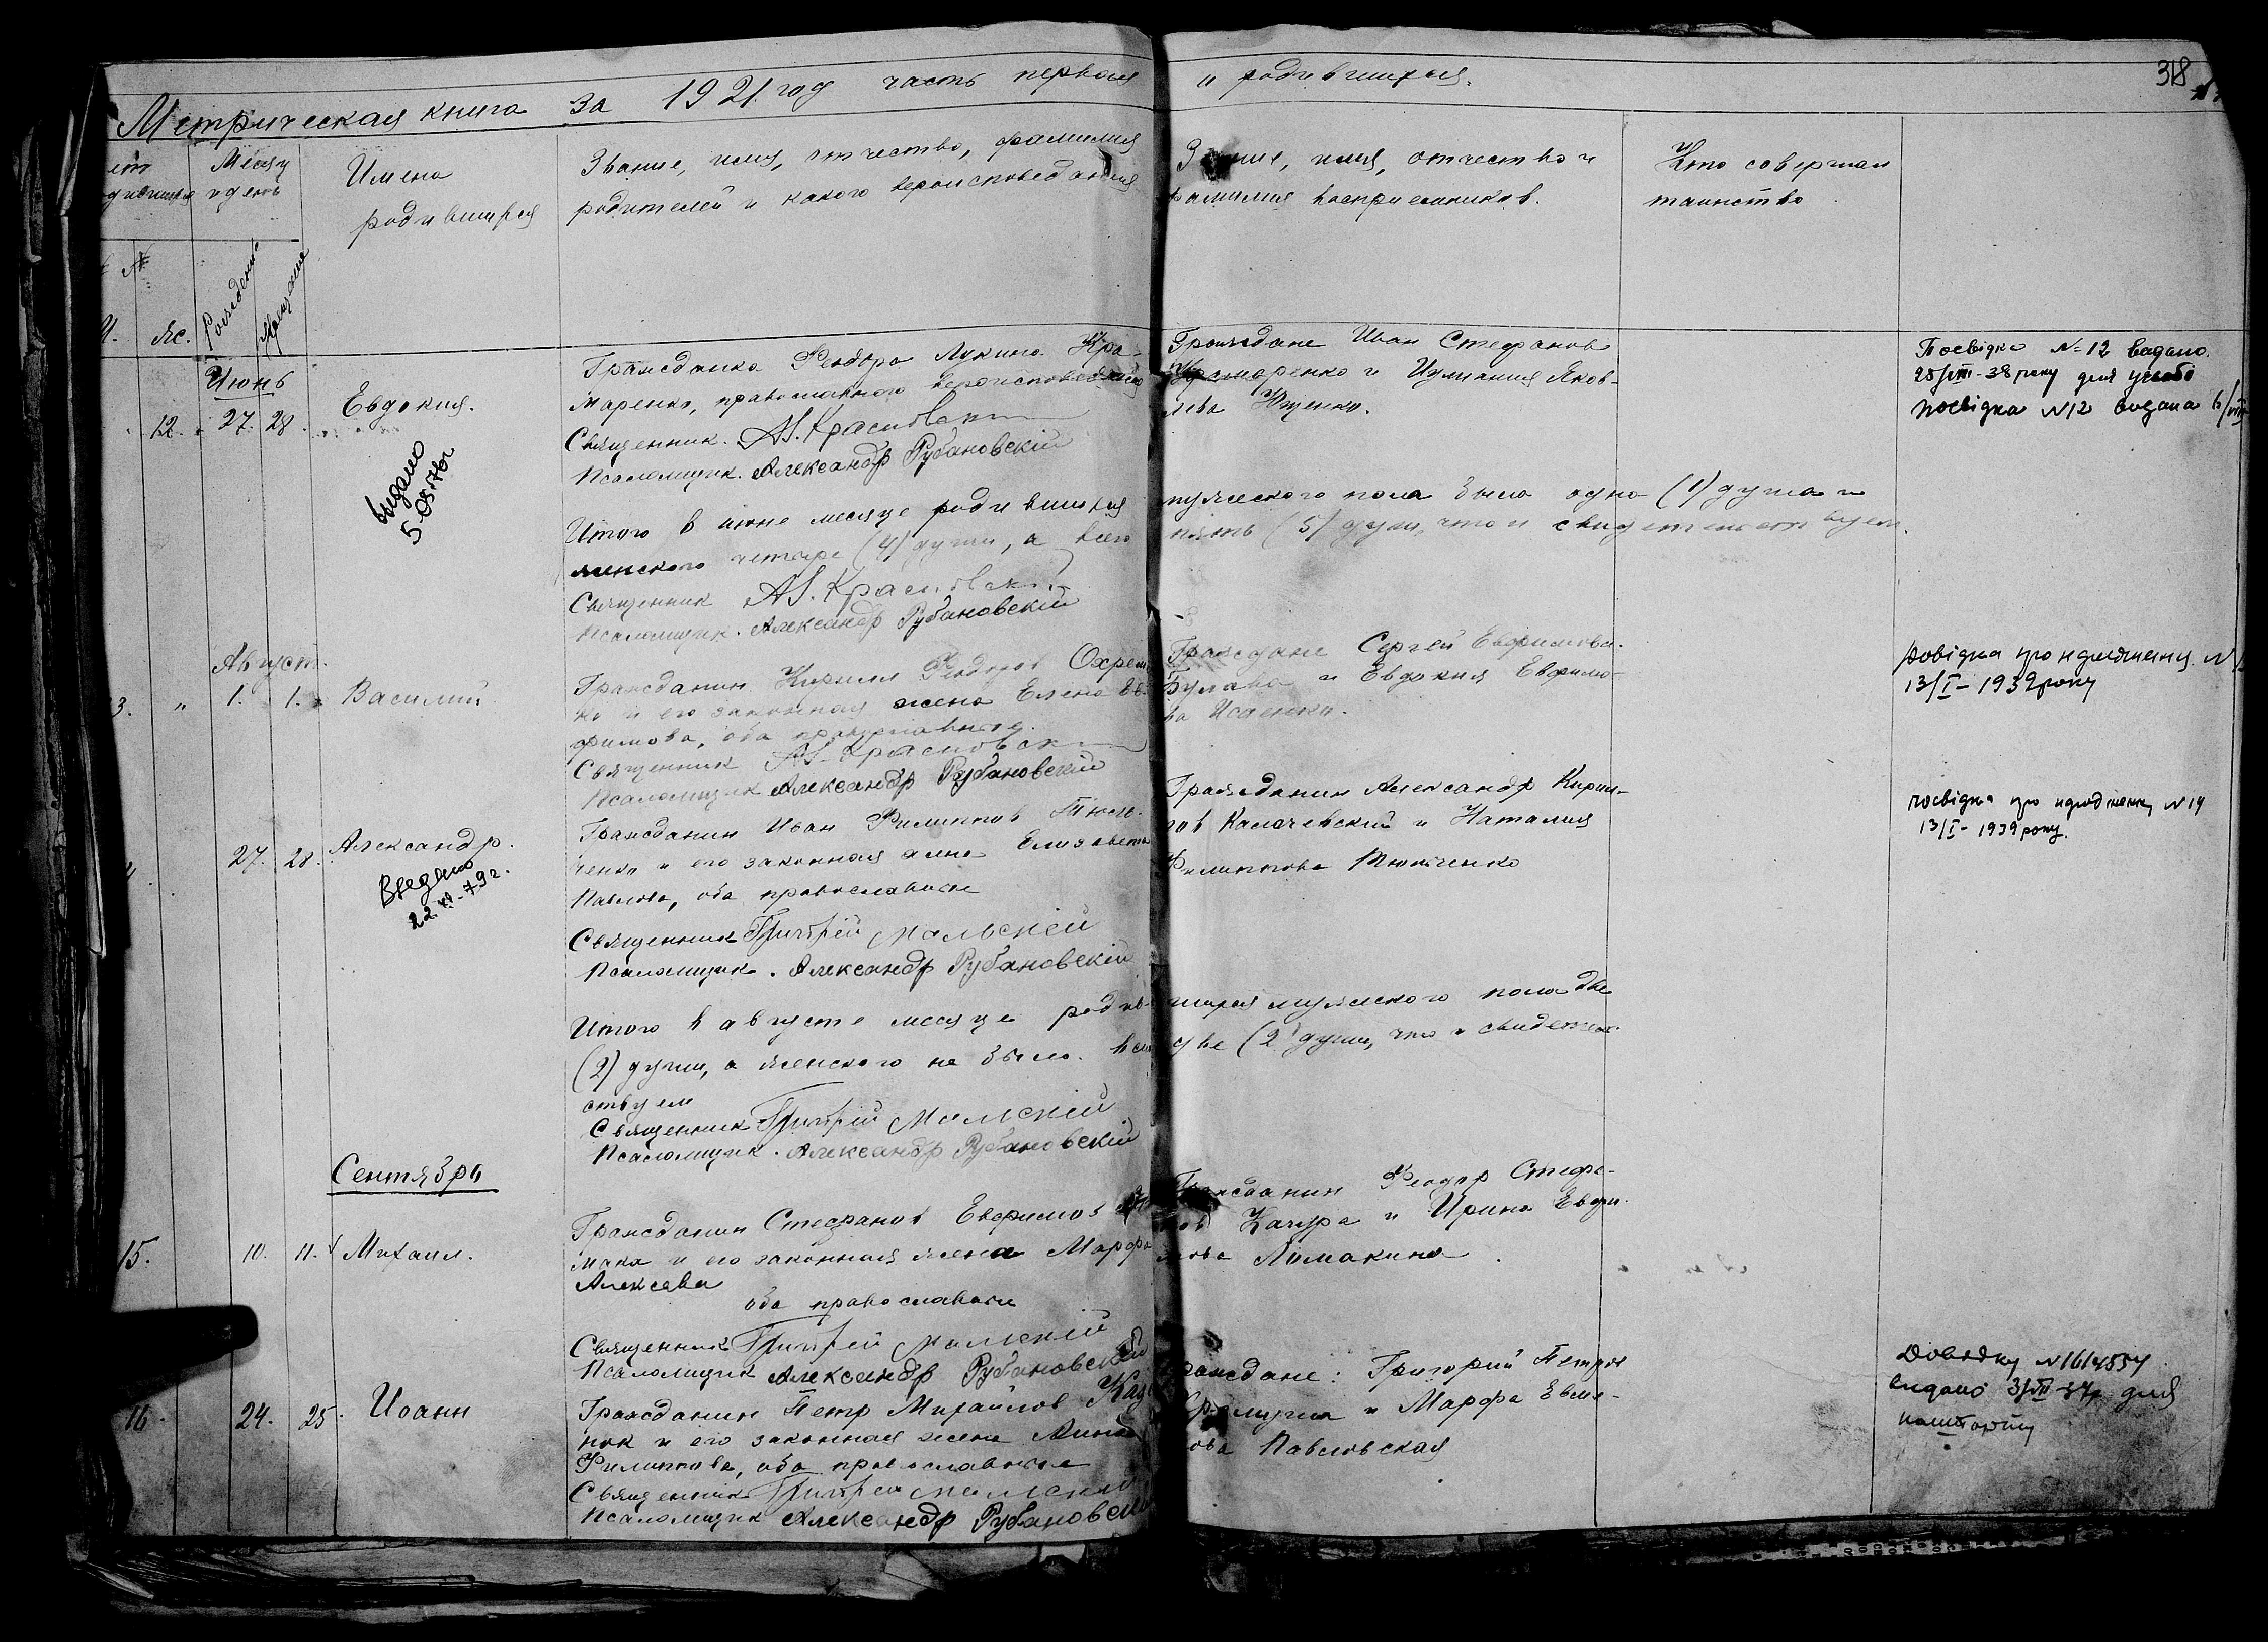 318
Метрическая книга за 1921 год часть первая о родившихся.
Месяц
и день
Рождения
Крещения
М.
Ж.
Имена
родившихся
Звание, имя, отчество, фамилия
родителей и какого вероисповедания
Звание, имя, отчество и
фамилия восприемников.
Кто совершал
таинство
Июнь
12. 27. 28.
Евдокия.
видано
Гражданка Феодора Лукина Кра-
маренко, православного вероисповедания
Священник
Псаломщик. Александр Рубановскій
Граждане Иван Стефанов
Крамаренко и Иулиания Яков-
лева Ищенко.
Посвідка №12 видано
28/VIII-38 року для
посвідка №12 видана
Итого в июне месяце родившихся мужеского пола было одна (1) душа и
женского четыре (4) души, а всего пять (5) душ, что и свидетельствуем.
Священник
Псаломщик. Александр Рубановскій
Август.
3. " 1. 1. Василий
Гражданин Кирилл Феодоров Охрем
ко и его законная жена Елена Ев-
фимова, оба православные.
Священник
Псаломщик Александр Рубановскій
Граждане Сергей Евфимов
Булава и Евдокия Евфимо-
ва Исаенко.
13/I-1939 року
27. 28. Александр.
Видано
22.XI-79г.
Гражданин Иван Филиппов Тюль-
ченко и его законная жена Елизавета
Павлова, оба православные
Священник Григорій Мальскій
Псаломщик. Александр Рубановскій
Гражданин Александр Кирил-
лов Калачевский и Наталия
Филиппова Тюльченко
посвідка про народження №14
13/I-1939 року.
Итого в августе месяце родившихся мужеского пола две
(2) души, а женского не было. Всего две (2) души, что и свидетель-
ствуем
Священник Григорій Мальскій
Псаломщик. Александр Рубановскій
Сентябрь
15. 10. 11. Михаил.
Гражданин Стефанов Евфимов
мака и его законная жена Марфа
Алексева
оба православные
Священник Григорій Мальскій
Псаломщик Александр Рубановскій
Гражданин Феодор Стефа-
нов Качура и Ирина Евфи-
мова Ломакина
16. 24. 25. Иоанн
Гражданин Петр Михайлов
нок и его законная жена Анна
Филиппова, оба православные
Священник Григорій Мальскій
Псаломщик Александр Рубановскій
Граждане: Григорий Петров
и Марфа
Павловская
Довідку №1614554
видано для
пашпорту